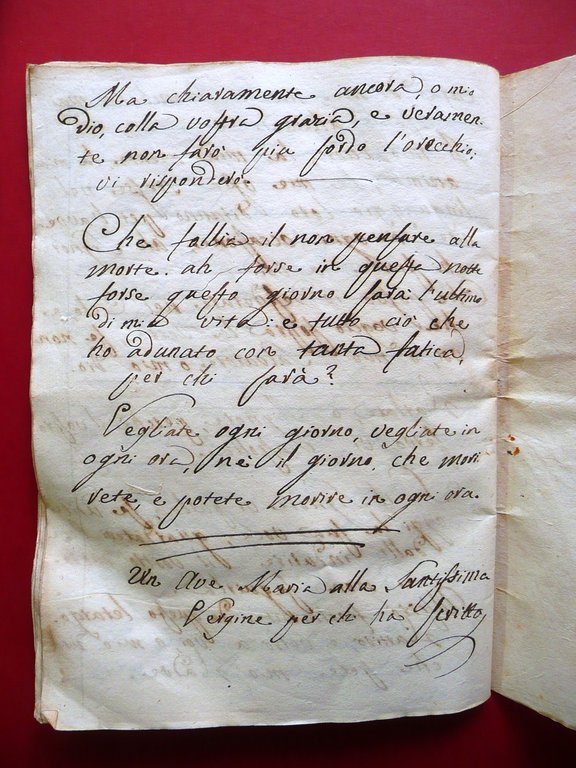 Ma chiaramente ancora, o mio
Dio, colla vostra grazia, e veramen-
te non farò più sordo l'orecchio;
vi risponderò.
Che follia il non pensare alla
morte. ah forse in questa notte
forse questo giorno sarà l'ultimo
di mia vita: e tutto ciò che
ho adunato con tanta fatica,
per chi sarà?
Vegliate ogni giorno, vegliate in
ogni ora, nè il giorno, che mori
rete, e potete morire in ogni ora.
Un Ave Maria alla Santissima
Vergine per chi ha scritto